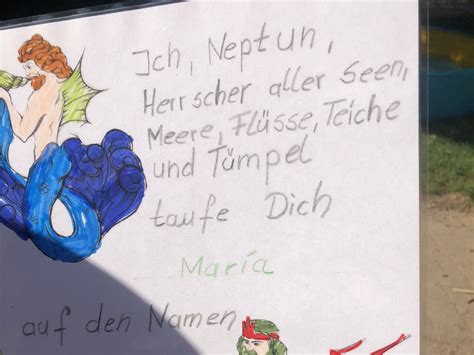 Ich, Neptun,
Herrscher aller Seen,
Meere, Flüsse, Teiche
und Tümpel
taufe Dich
Maria
auf den Namen